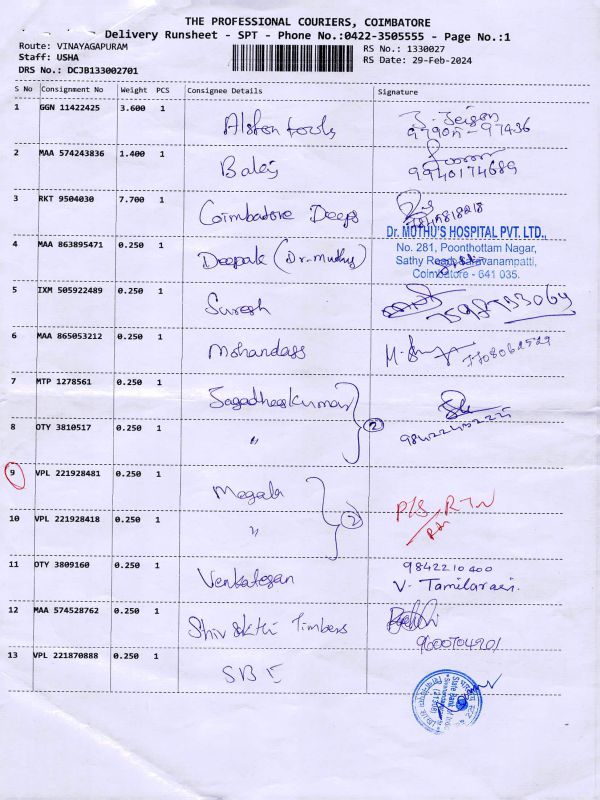 THE PROFESSIONAL COURIERS, COIMBATORE
Delivery Runsheet - SPT - Phone No.:0422-3505555 - Page No.:1
Route: VINAYAGAPURAM
RS No.: 1330027
Staff: USHA
RS Date: 29-Feb-2024
DRS No.: DCJB133002701
S No Consignment No Weight PCS Consignee Details Signature
1 GGN 11422425 3.600 1
2 MAA 574243836 1.400 1 Balaji
9940174689
3 RKT 9504030 7.700 1 Coimbatore Deeps
Dr. MUTHU'S HOSPITAL PVT. LTD.,
No. 281, Poonthottam Nagar,
4 MAA 863895471 0.250 1 Deepak (Dr. Muthu)
Sathy Road, Saravanampatti,
Coimbatore - 641 035.
5 IXM 505922489 0.250 1 Suresh
6 MAA 865053212 0.250 1 Mohandass
7 MTP 1278561 0.250 1 Jagadheeskumar
2
8 OTY 3810517 0.250 1 "
9 VPL 221928481 0.250 1 Megala
2
10 VPL 221928418 0.250 1 "
11 OTY 3809160 0.250 1 Venkatesan
9842210400
12 MAA 574528762 0.250 1 Shiv Sakthi Timbers
9600704201
13 VPL 221870888 0.250 1 SBI